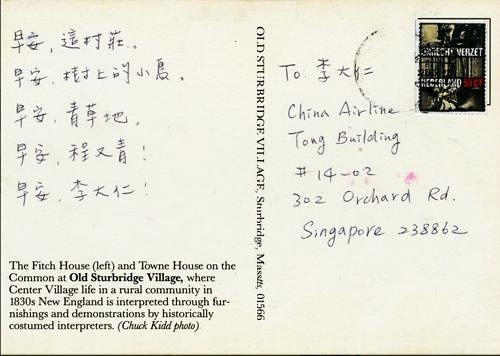 早安,這村莊。
早安,樹上的小鳥。
早安,青草地。
早安,程又青!
早安,李大仁!
The Fitch House (left) and Towne House on the
Common at Old Sturbridge Village, where
Center Village life in a rural community in
1830s New England is interpreted through fur-
nishings and demonstrations by historically
costumed interpreters. (Chuck Kidd photo)
OLD STURBRIDGE VILLAGE, Sturbridge, Massttx 01566
VERZET
NEDERLAND 50 ct
To: 李大仁
China Airline
Tong Building
#14-02
302 Orchard Rd.
Singapore 238862